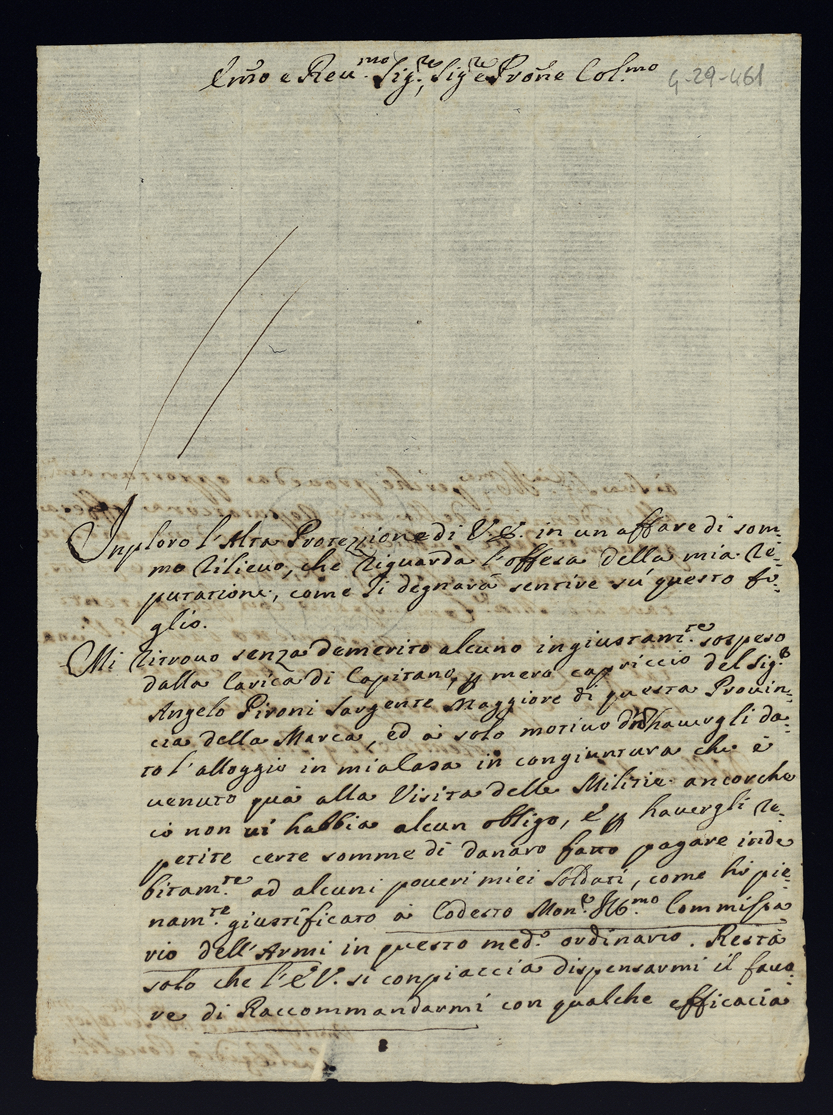 Em̃o e Reu.mo Sig.re, Sig.re e Prõne Col.mo
4-29-461
Inploro l'Alta Protezzione di V. E. in un affare di som=
mo rilieuo, che riguarda l'offesa della mia re=
putatione, come si degnarà sentire su questo fo=
glio.
Mi ritrouo senza demerito alcuno ingiustam.te sospeso
dalla Carica di Capitano, p mero capriccio del Sig.r
Angelo Pironi Sargente Maggiore di questa Prouin=
cia della Marca, ed à solo motiuo di hauergli da=
to l'alloggio in mia Casa in congiuntura che è
uenuto quà alla Visita delle Militie ancorche
ciò non ui habbia alcun obligo, e p hauergli re=
petite certe somme di danaro fatto pagare inde
bitam.te ad alcuni poueri miei Soldati, come hò pie=
nam.te giustificato à Codesto Mon.r Ill.mo Commissa
rio dell'Armi in questo med.o ordinario. Resta
solo che l'E. V. si conpiaccia dispensarmi il fauo
re di Raccommandarmi con qualche efficacia